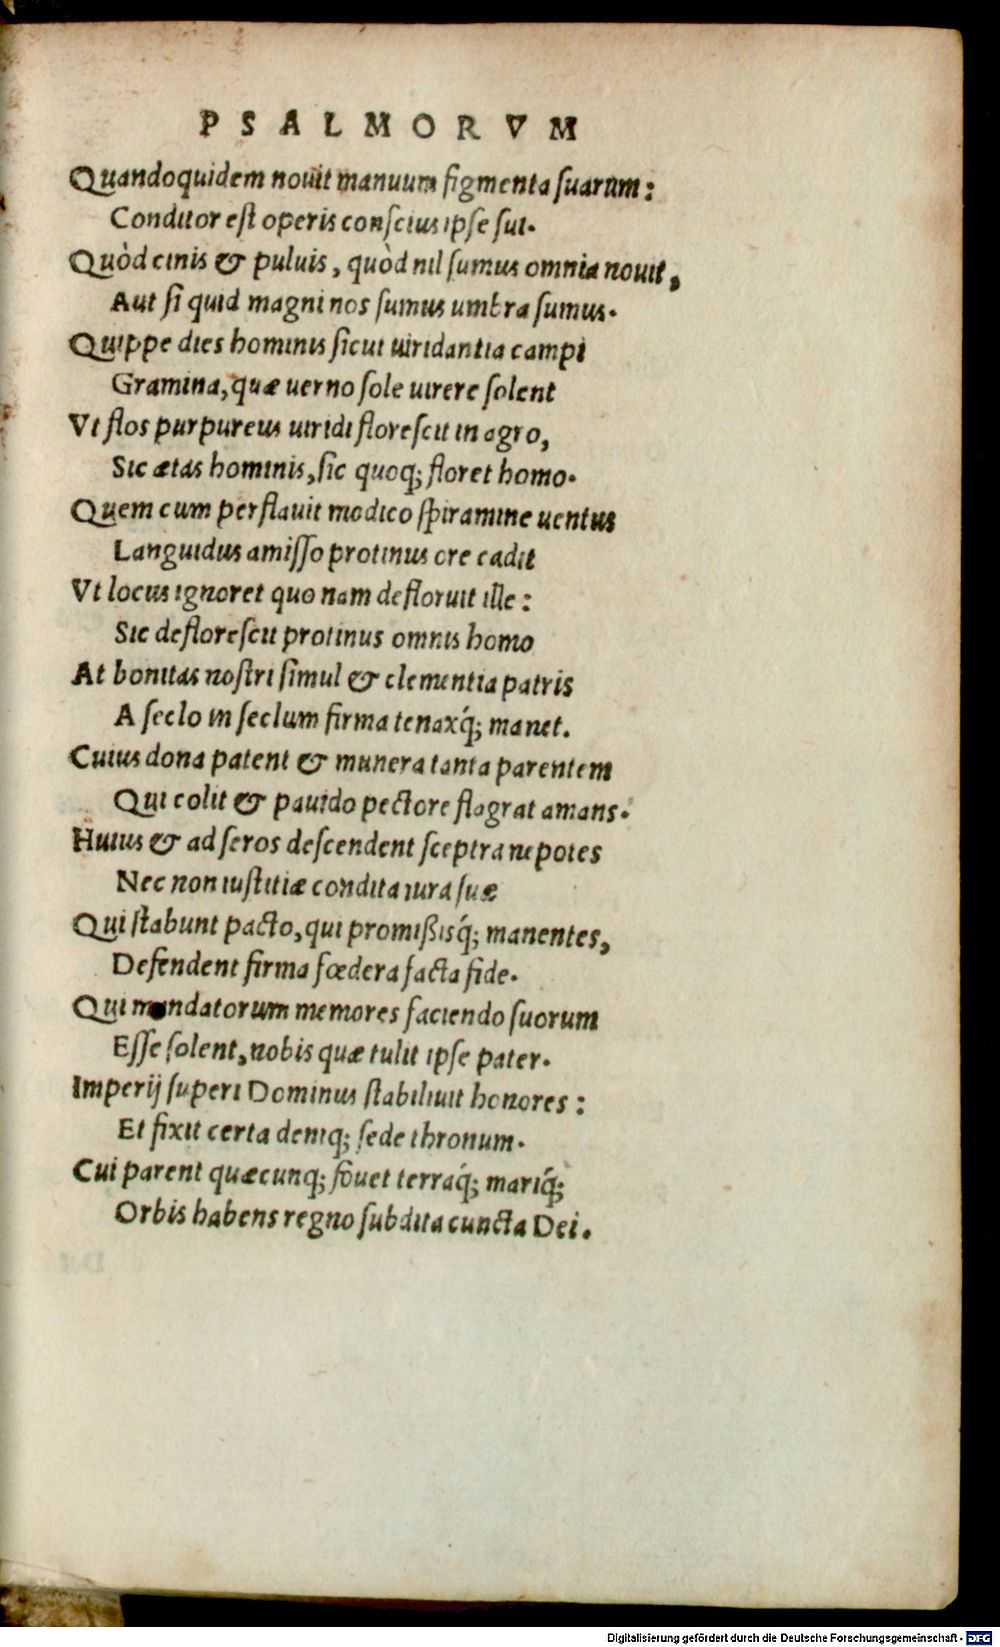 PSALMORVM
Quandoquidem nouit manuum figmenta suarum:
Conditor est operis conscius ipse sui.
Quòd cinis & puluis, quòd nil sumus omnia nouit,
Aut si quid magni nos sumus umbra sumus.
Quippe dies hominis sicut uiridantia campi
Gramina, quæ uerno sole uirere solent
Vt flos purpureus uiridi florescit in agro,
Sic ætas hominis, sic quoq; floret homo.
Quem cum perflauit modico spiramine uentus
Languidus amisso protinus ore cadit
Vt locus ignoret quo nam defloruit ille:
Sic deflorescit protinus omnis homo
At bonitas nostri simul & clementia patris
A seclo in seclum firma tenaxq́; manet.
Cuius dona patent & munera tanta parentem
Qui colit & pauido pectore flagrat amans.
Huius & ad seros descendent sceptra nepotes
Nec non iustitiæ condita iura suæ
Qui stabunt pacto, qui promißisq́; manentes,
Defendent firma fœdera facta fide.
Qui mandatorum memores faciendo suorum
Esse solent, nobis quæ tulit ipse pater.
Imperij superi Dominus stabiliuit honores:
Et fixit certa deniq; sede thronum.
Cui parent quæcunq; fouet terraq́; mariq́;
Orbis habens regno subdita cuncta Dei.
Digitalisierung gefördert durch die Deutsche Forschungsgemeinschaft - DFG